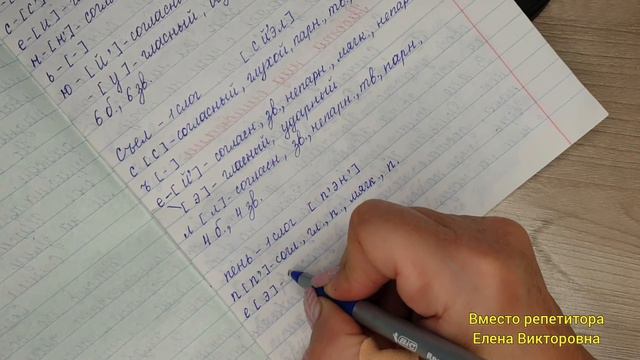 с - [с'
е - [и] - гласн
н - [н'] - согласн
ь - [-]
ю - [й'] - согласн
- [у] - гласный,
6 б., 6 зв
съел - 1 слог [сй'эл]
с [с] - согласный, глухой, парн., тв.,
ъ [-]
е - [й'] - согласн., зв., непарн., мягк., непарн.
[э] - гласный, ударный
л [л] - согласн., зв., непарн., тв., парн.,
4 б., 4 зв.
пень - 1 слог [п'эн']
п [п'] - согл., гл., п., мягк., п.
е [э] -
Вместо репетитора
Елена Викторовна
BIC